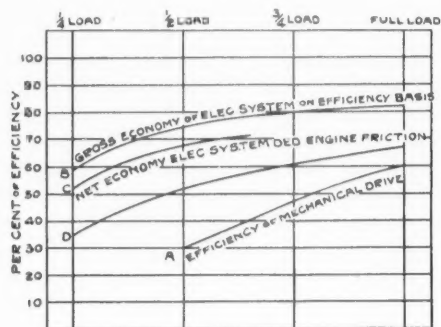 1/4 LOAD
1/2 LOAD
3/4 LOAD
FULL LOAD
PER CENT OF EFFICIENCY
100
90
80
70
60
50
40
30
20
10
B
GROSS ECONOMY OF ELEC SYSTEM ON EFFICIENCY BASIS
C
NET ECONOMY ELEC SYSTEM DED ENGINE FRICTION
D
A
EFFICIENCY OF MECHANICAL DRIVE